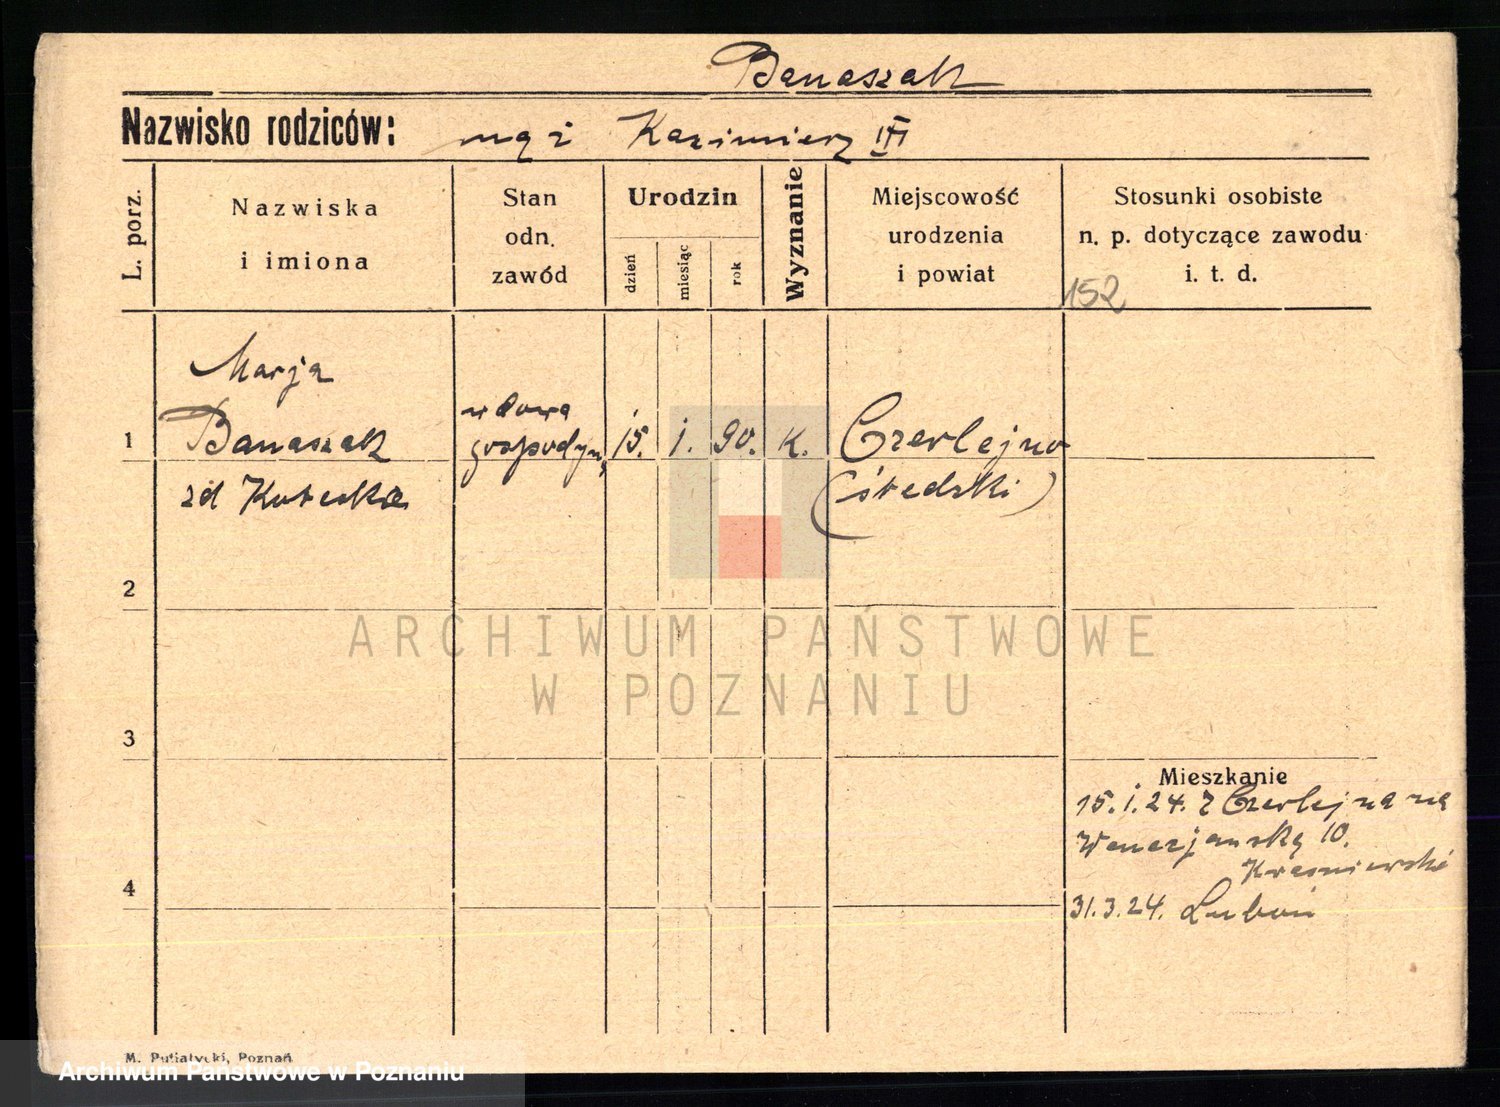 Banaszak
Nazwisko rodziców: mąż Kazimierz
L. porz.
Nazwiska
i imiona
Stan
odn.
zawód
Urodzin
dzień
miesiąc
rok
Wyznanie
Miejscowość
urodzenia
i powiat
Stosunki osobiste
n. p. dotyczące zawodu
i. t. d.
152
Marja
1 Banaszak
zd
wdowa
gospodyni
15. 1. 90. K.
Czerlejno
(średzki)
2
3
4
Mieszkanie
15.1.24. z Czerlejna na
Wenecjańską 10.
Kraśniewski
31.3.24. Luboń
ARCHIWUM PAŃSTWOWE
W POZNANIU
M. Putiatycki, Poznań
Archiwum Państwowe w Poznaniu